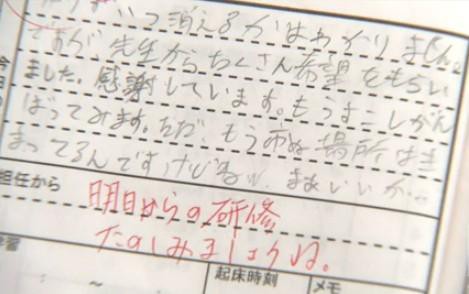 ずいつ消えるかはわかりません。
ですが、先生からたくさん希望をもらい
ました。感謝しています。もうすこしがん
ばってみます。ただ、もう市ぬ場所はき
まってるんですけどねw。まあいいか…
担任から
明日からの研修
たのしみましょうね。
今日の
学習
～
起床時刻
メモ